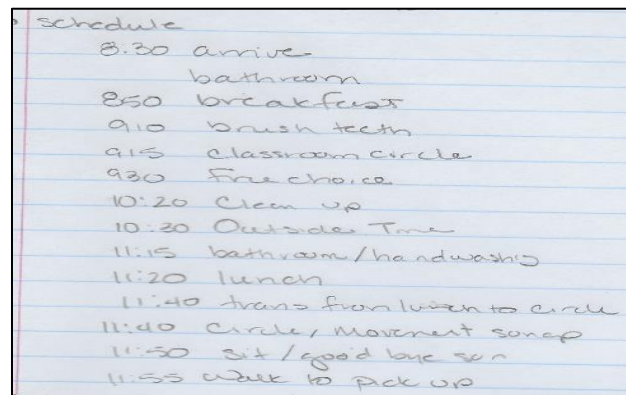 schedule
8.30 arrive
bathroom
850 breakfast
910 brush teeth
915 classroom circle
930 free choice
10:20 Clean up
10:30 Outside Time
11:15 bathroom/handwashing
11:20 lunch
11:40 trans from lunch to circle
11:40 Circle, movement songs
11:50 sit/good bye son
11:55 Walk to pick up